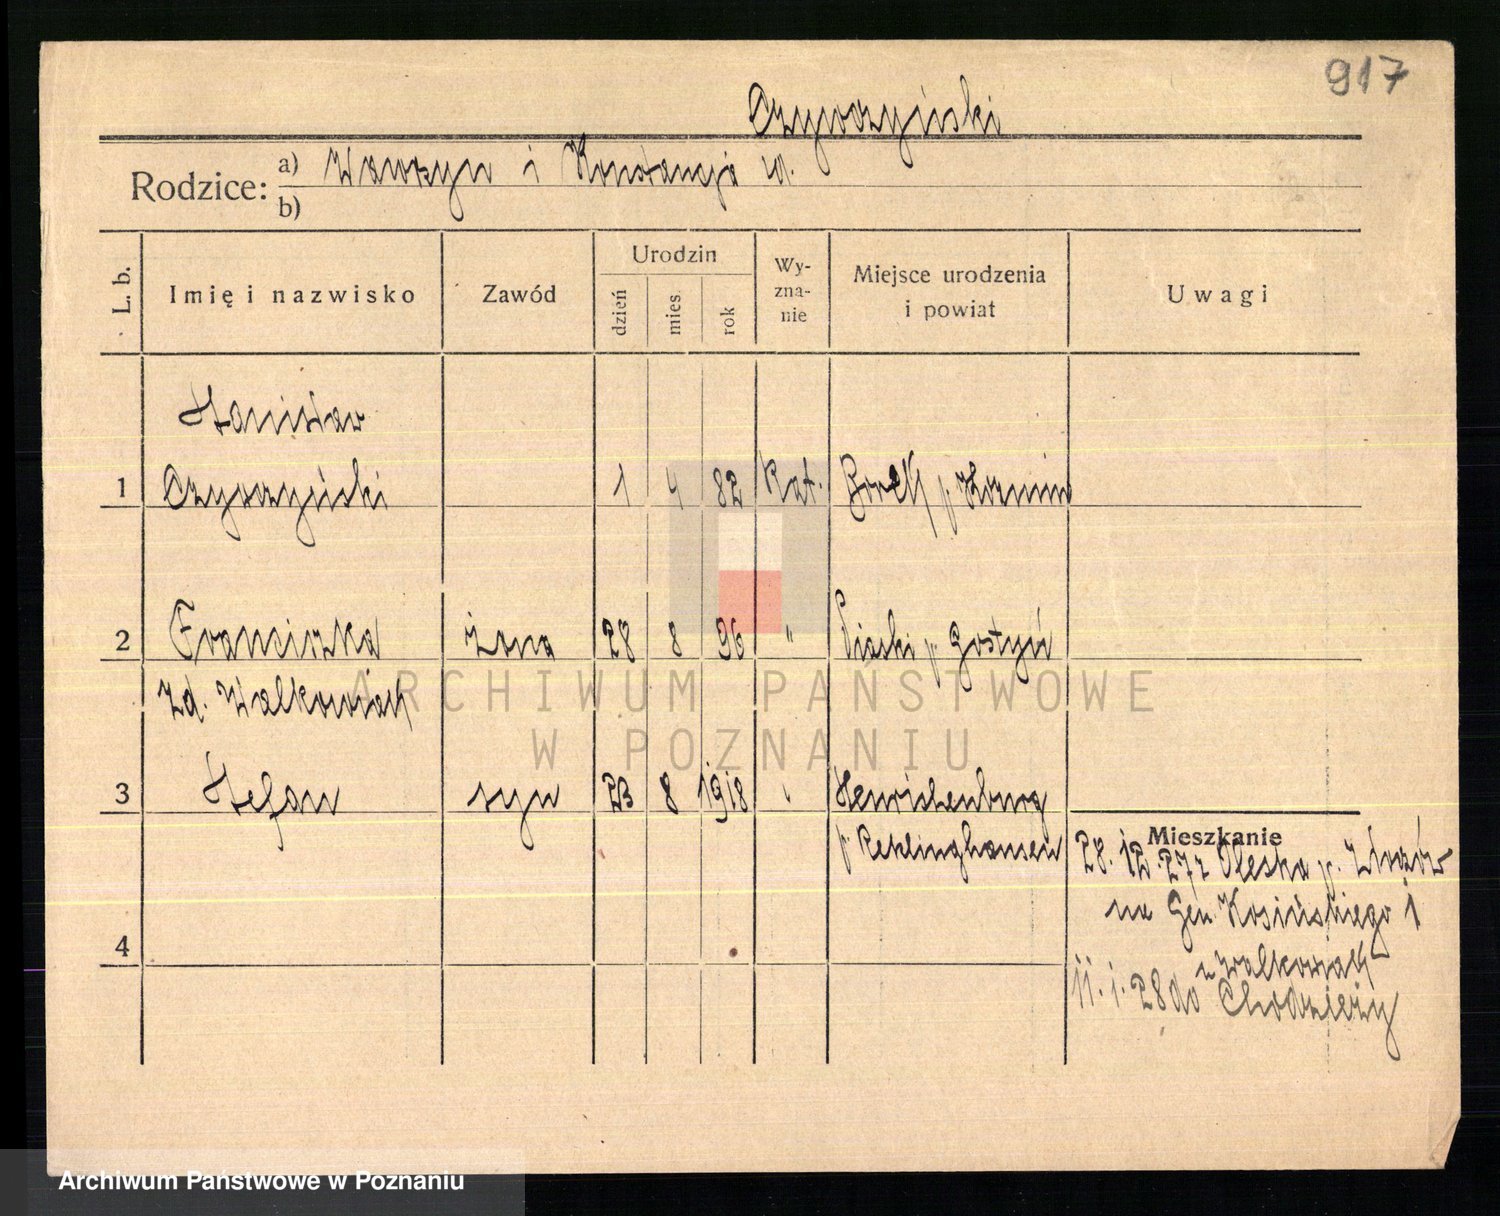 917
Czyrczyński
Rodzice: a) Wawrzyn i Konstancja zd.
b)
L. b. Imię i nazwisko Zawód Urodzin dzień mies. rok Wy-zna-nie Miejsce urodzenia i powiat Uwagi
Stanisław
1 Czyrczyński 1 4 82 Kat. Borek p. Koźmin
2 Franciszka żona 28 8 96 " Piaski p. Gostyń
zd. Walkowiak
3 Stefan syn 23 8 1918 " Henrichenburg
p. Reklinghausen
Mieszkanie
28. 12. 27 z Oleska p. Złoczów
na Gen. Kosińskiego 1
4
z Walkowiak
11. 1. 28 do Chodzieży
ARCHIWUM PAŃSTWOWE
W POZNANIU
Archiwum Państwowe w Poznaniu